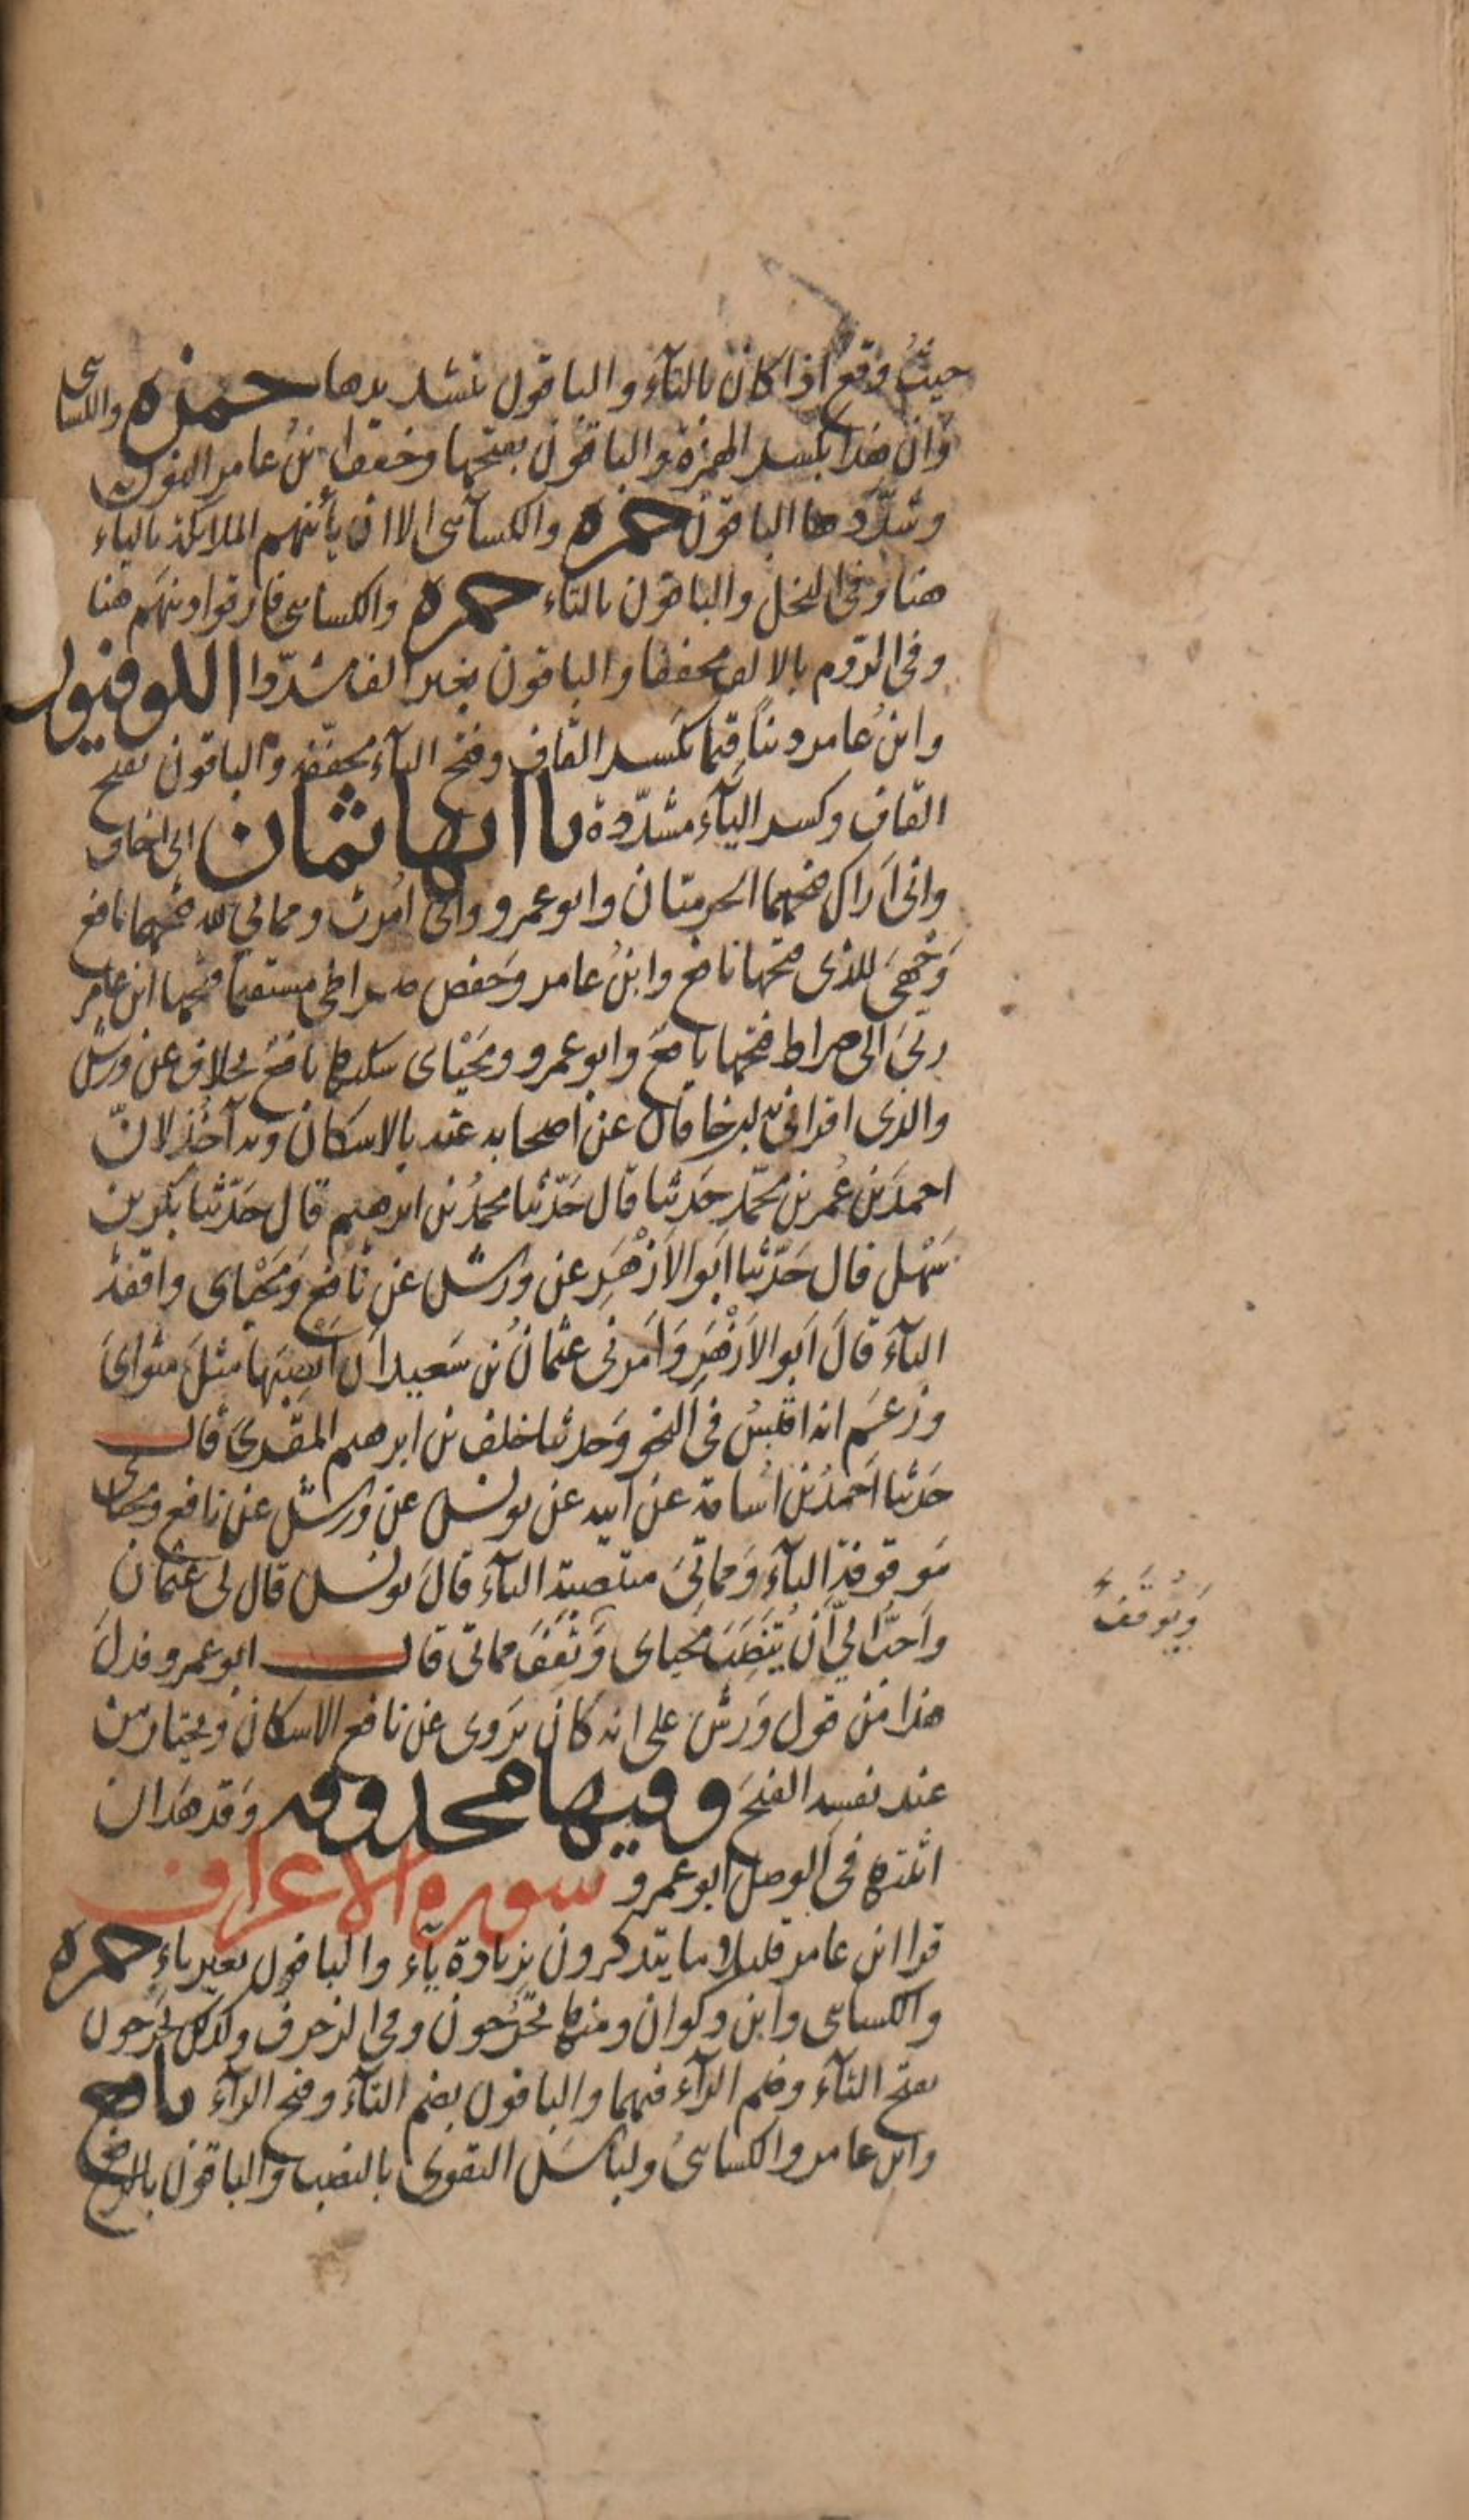 حيثُ وقع اذا كان بالتآء والباقون بتشديدها حمزه والكسائى
وان هذا بكسر الهمزة والباقون بفتحها وخفف ابن عامر النون
وشدّدها الباقون حمزه والكسآئى الا ان يأتيهم الملائكة بالياء
هنا وفى النحل والباقون بالتاء حمزه والكسائى فارقوا دينهم هنا
وفى الروم بالالف مخففا والباقون بغير الف مشدّدا الكوفيون
وابن عامر ديناً قيما بكسر القاف وفتح اليآء مخفّفة والباقون بفتح
القاف وكسر اليآء مشدّدة ياآتها ثمان انى اخاف
وانى اَراك فتحهما الحرميّان وابو عمرو وانى اُمرت ومماتي لله فتحهما نافع
وَجهىَ للذى فتحها نافع وابنُ عامر وَحفص صراطى مستقيما فتحها ابن عامر
ربّىَ الى صراط فتحها نافع وابو عمرو ومَحْيَاى سكنها نافع بخلاف عن ورش
والذى اقرانى به ابن خاقان عن اصحابه عنه بالاسكان وبه آخذ لانّ
احمدَ بن عُمر بن محمّد حَدثنا قال حَدّثنا محمدُ بن ابرهيم قال حَدّثنا بكر بن
سَهْل قال حَدّثنا ابَو الاَزْهَرِ عن ورش عن نافع وَمَحْيَاى واقفةُ
اليآءَ قالَ اَبو الاَزْهَرِ وَاَمرنى عثمانُ بن سَعيد اَن اَنصِبَها مثلَ مثواىَ
وزعَم انه اقيسُ فى النحو وَحدثنا خلف بن ابرهيم المقرئ قال
حَدثنا اَحمدُ بن اُسامة عن ابيه عن يونس عن ورش عن نافع ومحياى
مَوقوفة اليآءِ وَمماتىَ منتصبة اليآءَ قالَ يونس قال لى عثمان
وَاَحبُّ الىّ اَن يُنصَبَ مَحياى وَتقفَ مماتى قال ابو عمرو فدلَ
وَيُوقَفَ
هذا مَن قول وَرش على انه كان يَروى عن نافع الاسكان ويختار من
عند نفسه الفتحَ وفيها محذوفه وَقد هَدان
اثبتها فى الوصل ابو عمرو سوره الاعراف
قرا ابن عامر قليلا ما يتذكرون بزيادة يآء والباقون بغير ياءٍ حمزه
والكسائى وابن ذكوان ومنها تخرُجون وفى الزخرف وكذلك تَخرُجون
بفتح التآء وضم الرآء فيهما والباقون بضم التآء وفتح الرآء نافع
وابن عامر والكسائىُ ولباسَ التقوى بالنصب والباقون بالرفع